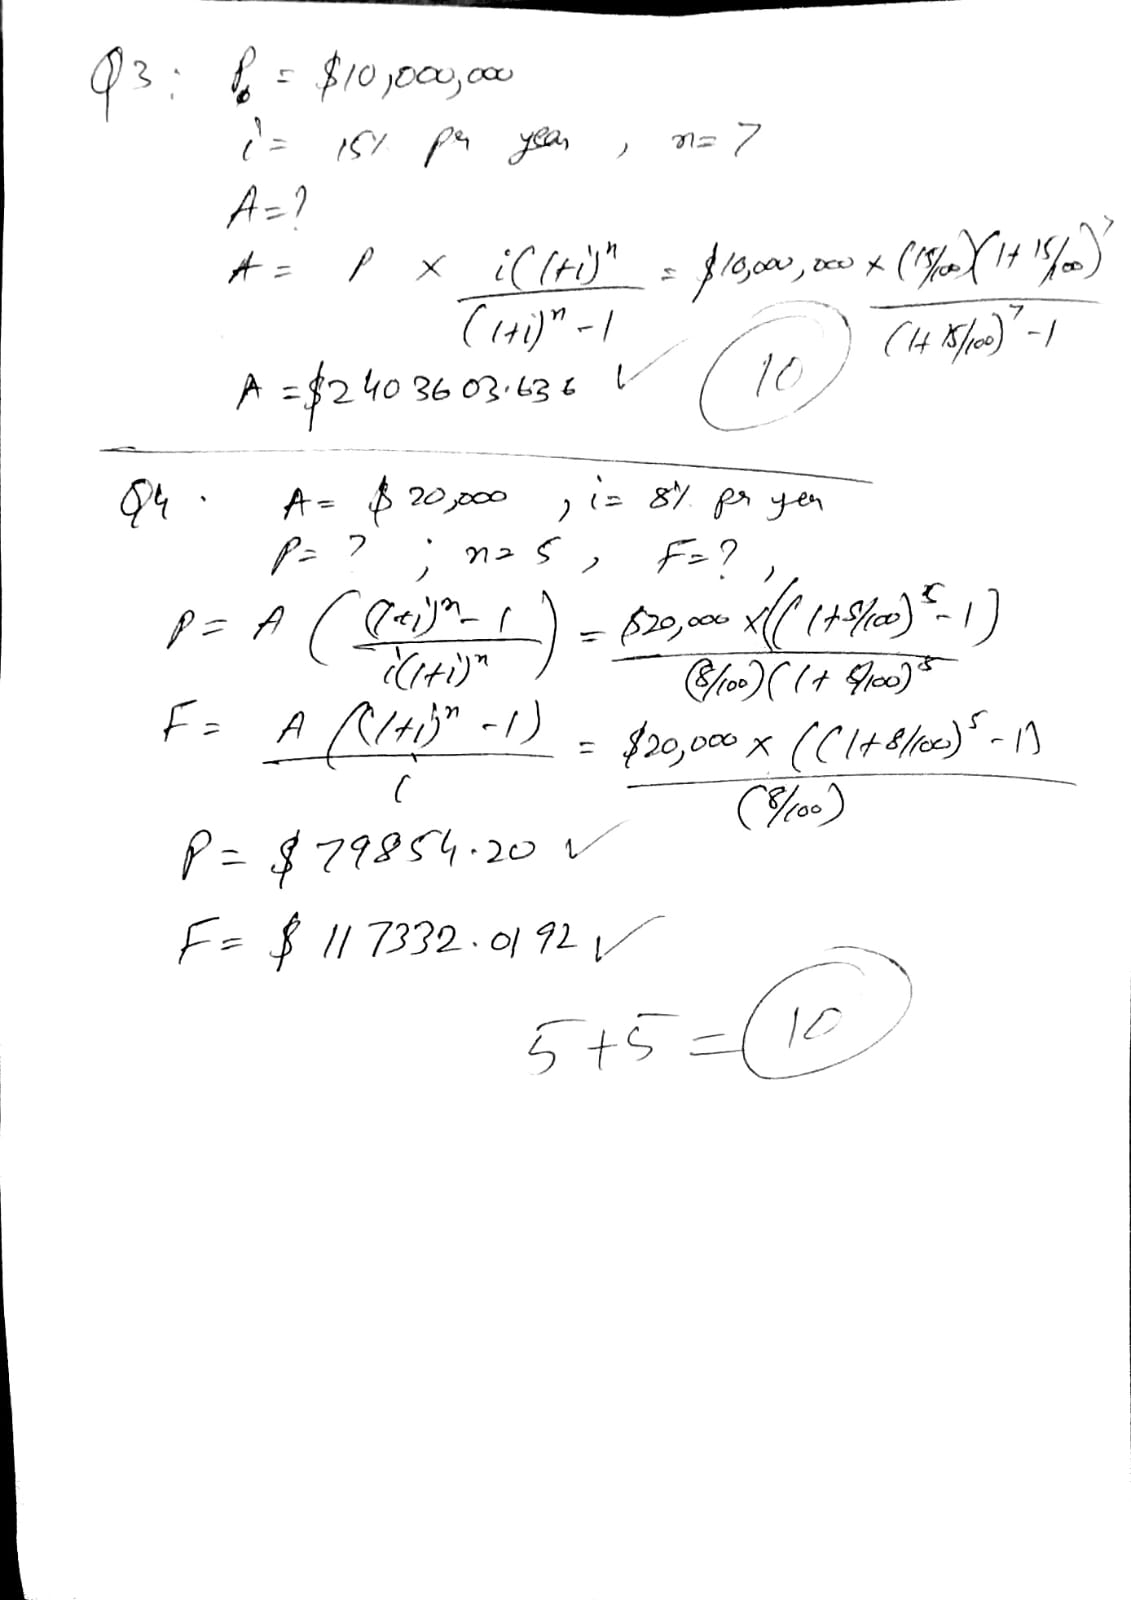 Q3: P₀ = $10,000,000
i = 15% per year, n=7
A=?
A = P × i(1+i)ⁿ / (1+i)ⁿ-1 = $10,000,000 × (15/100)(1+15/100)⁷ / (1+15/100)⁷-1
A = $2403603.636 ✓ 10
Q4. A= $20,000, i= 8% per year
P= ? ; n=5, F=?,
P= A ((1+i)ⁿ-1 / i(1+i)ⁿ) = $20,000 ×((1+8/100)⁵-1) / (8/100)(1+8/100)⁵
F= A((1+i)ⁿ-1) / i = $20,000 × ((1+8/100)⁵-1) / (8/100)
P= $79854.20 ✓
F= $117332.0192 ✓
5+5= 10